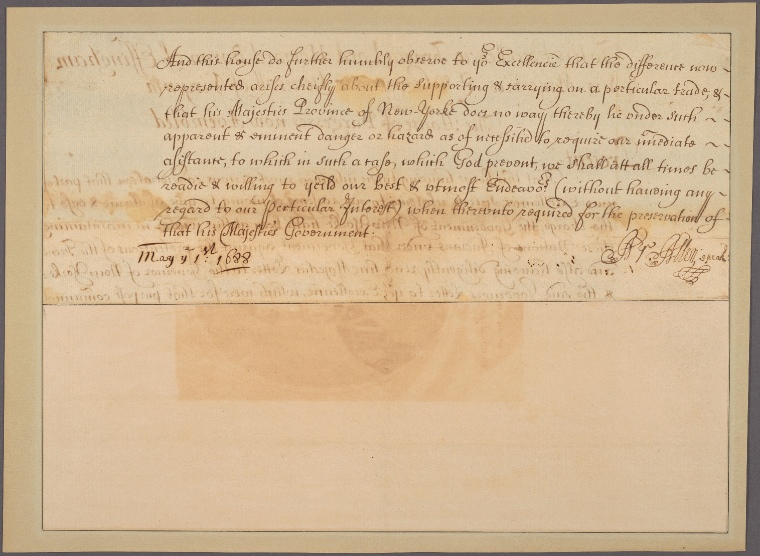 And this house do further humbly observe to yo.r Excellencie that the difference now
represented arises cheifly about the supporting & carrying on a perticular trade, &
that his Majesties Province of New-Yorke does no way thereby lie under such
apparent & eminent danger or hazard as of necessitie to require our imediate
assistance, to which in such a case, which God prevent, we shall att all times be
readie & willing to yeild our best & utmost Endeavo.rs (without haveing any
regard to our perticular Interest) when thereunto required for the preservation of
that his Majesties Government:
May y.e 1.st 1688
Ar. Allen, speak.r